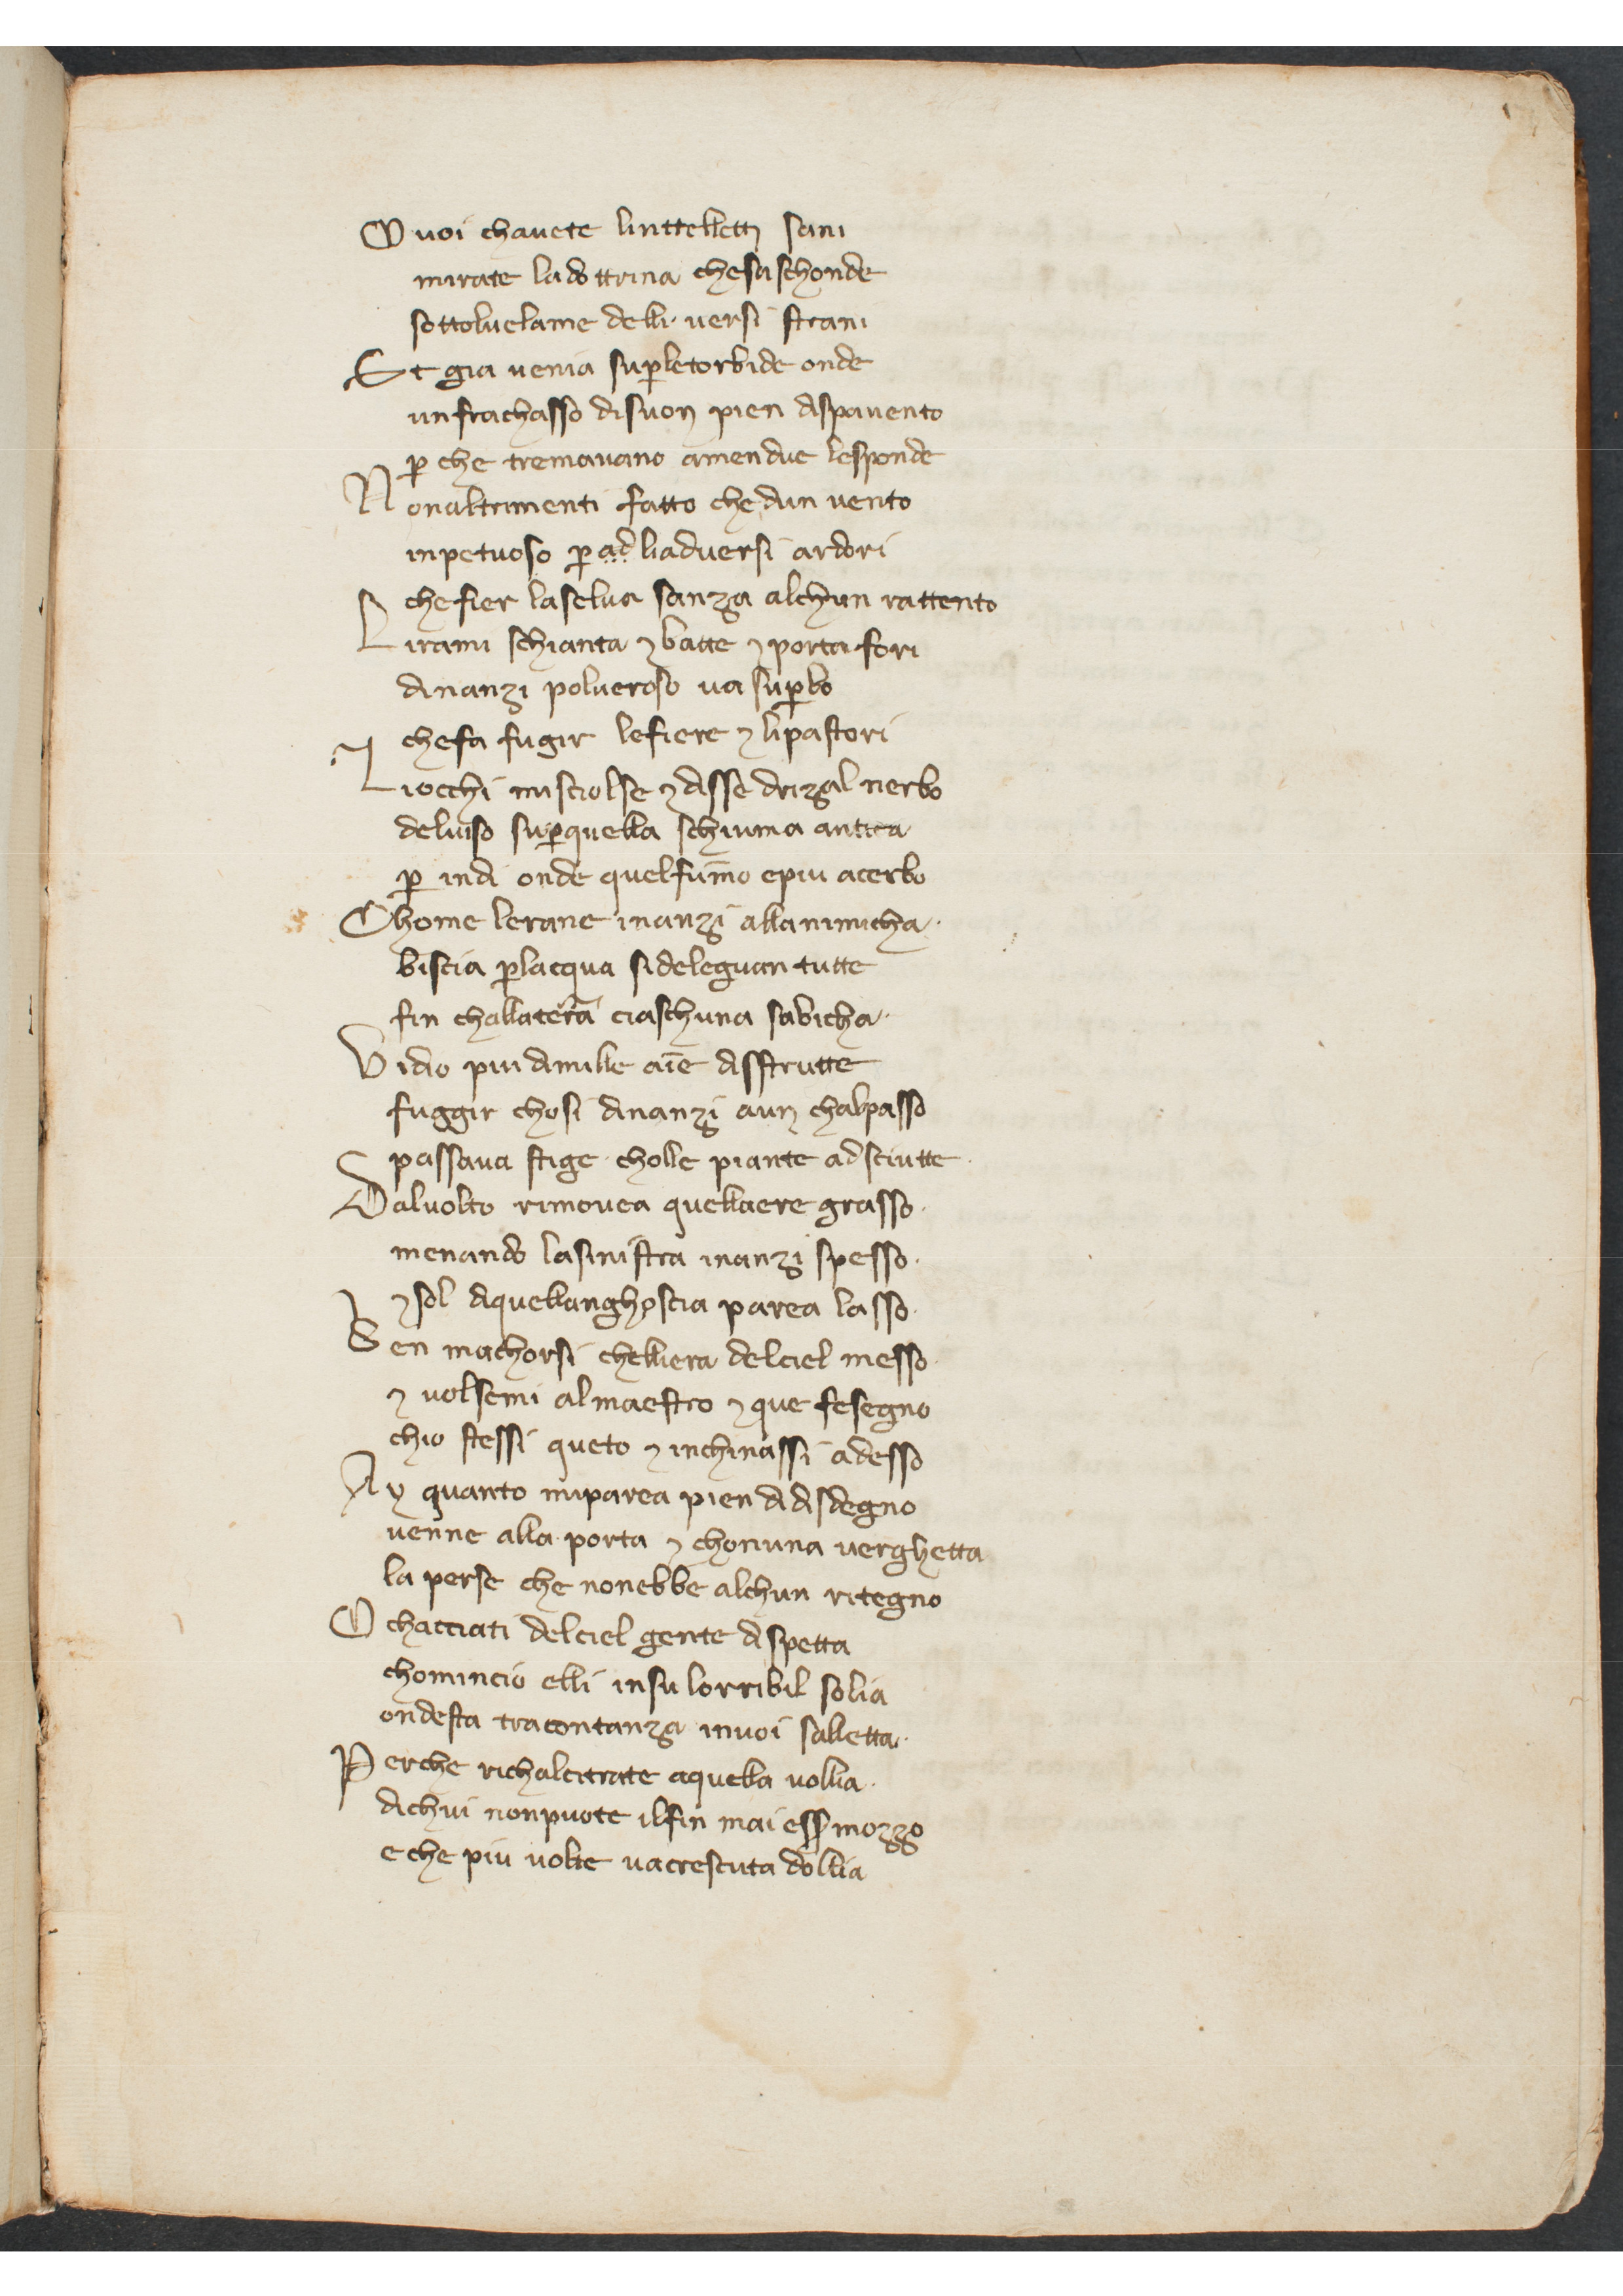 O voi chavete lintelletti sani
mirate la dottrina chesaschonde
sottoluelame delli versi strani
Et gia venia suꝑletorbide onde
unfrachasso disuon pien dispavento
ꝑ che tremavano amendue lesponde
Nonaltrimenti fatto che dun vento
inpetuoso ꝑ ad liadversi ardori
che fier laselva sanza alchun rattento
Lirami schianta ⁊ batte ⁊ porta fori
dinanzi polveroso va suꝑbo
⁊ chefa fugir lefiere ⁊ lipastori
Liocchi misciolse ⁊ disse drizal nerbo
delviso suꝑquella schiuma antica
ꝑ indi onde quelfūmo epiu acerbo
Chome lerane inanzi allanimicha
biscia ꝑlacqua sideleguan tutte
fin challaterra ciaschuna sabicha
Vidio piu dimille aīe distrutte
fuggir chosi dinanzi aun chalpasso
passava stige cholle piante adsciutte
Dalvolto rimovea quellaere grasso
menando lasinistra inanzi spesso
⁊ sol diquellanghoscia parea lasso
Ben machorsi chelliera delciel messo
⁊ volsemi almaestro ⁊ que fesegno
chio stessi queto ⁊ inchinassi adesso
Ay quanto miparea pien didisdegno
venne alla porta ⁊ chonuna verghetta
la perse che nonebbe alchun ritegno
O chacciati delciel gente dispetta
chomincio elli insu lorribil solia
ondesta tracontanza invoi salletta
Perche richalcitrate aquella vollia
dichui nonpuote ilfin mai esser mozzo
e che piu volte vacresciuta dollia